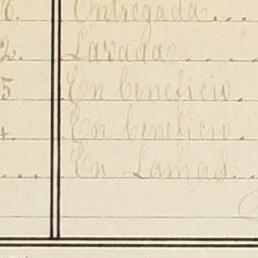 Entregada....
2. Lavada.....
5 En beneficio.
En beneficio.
.... En Lamas..